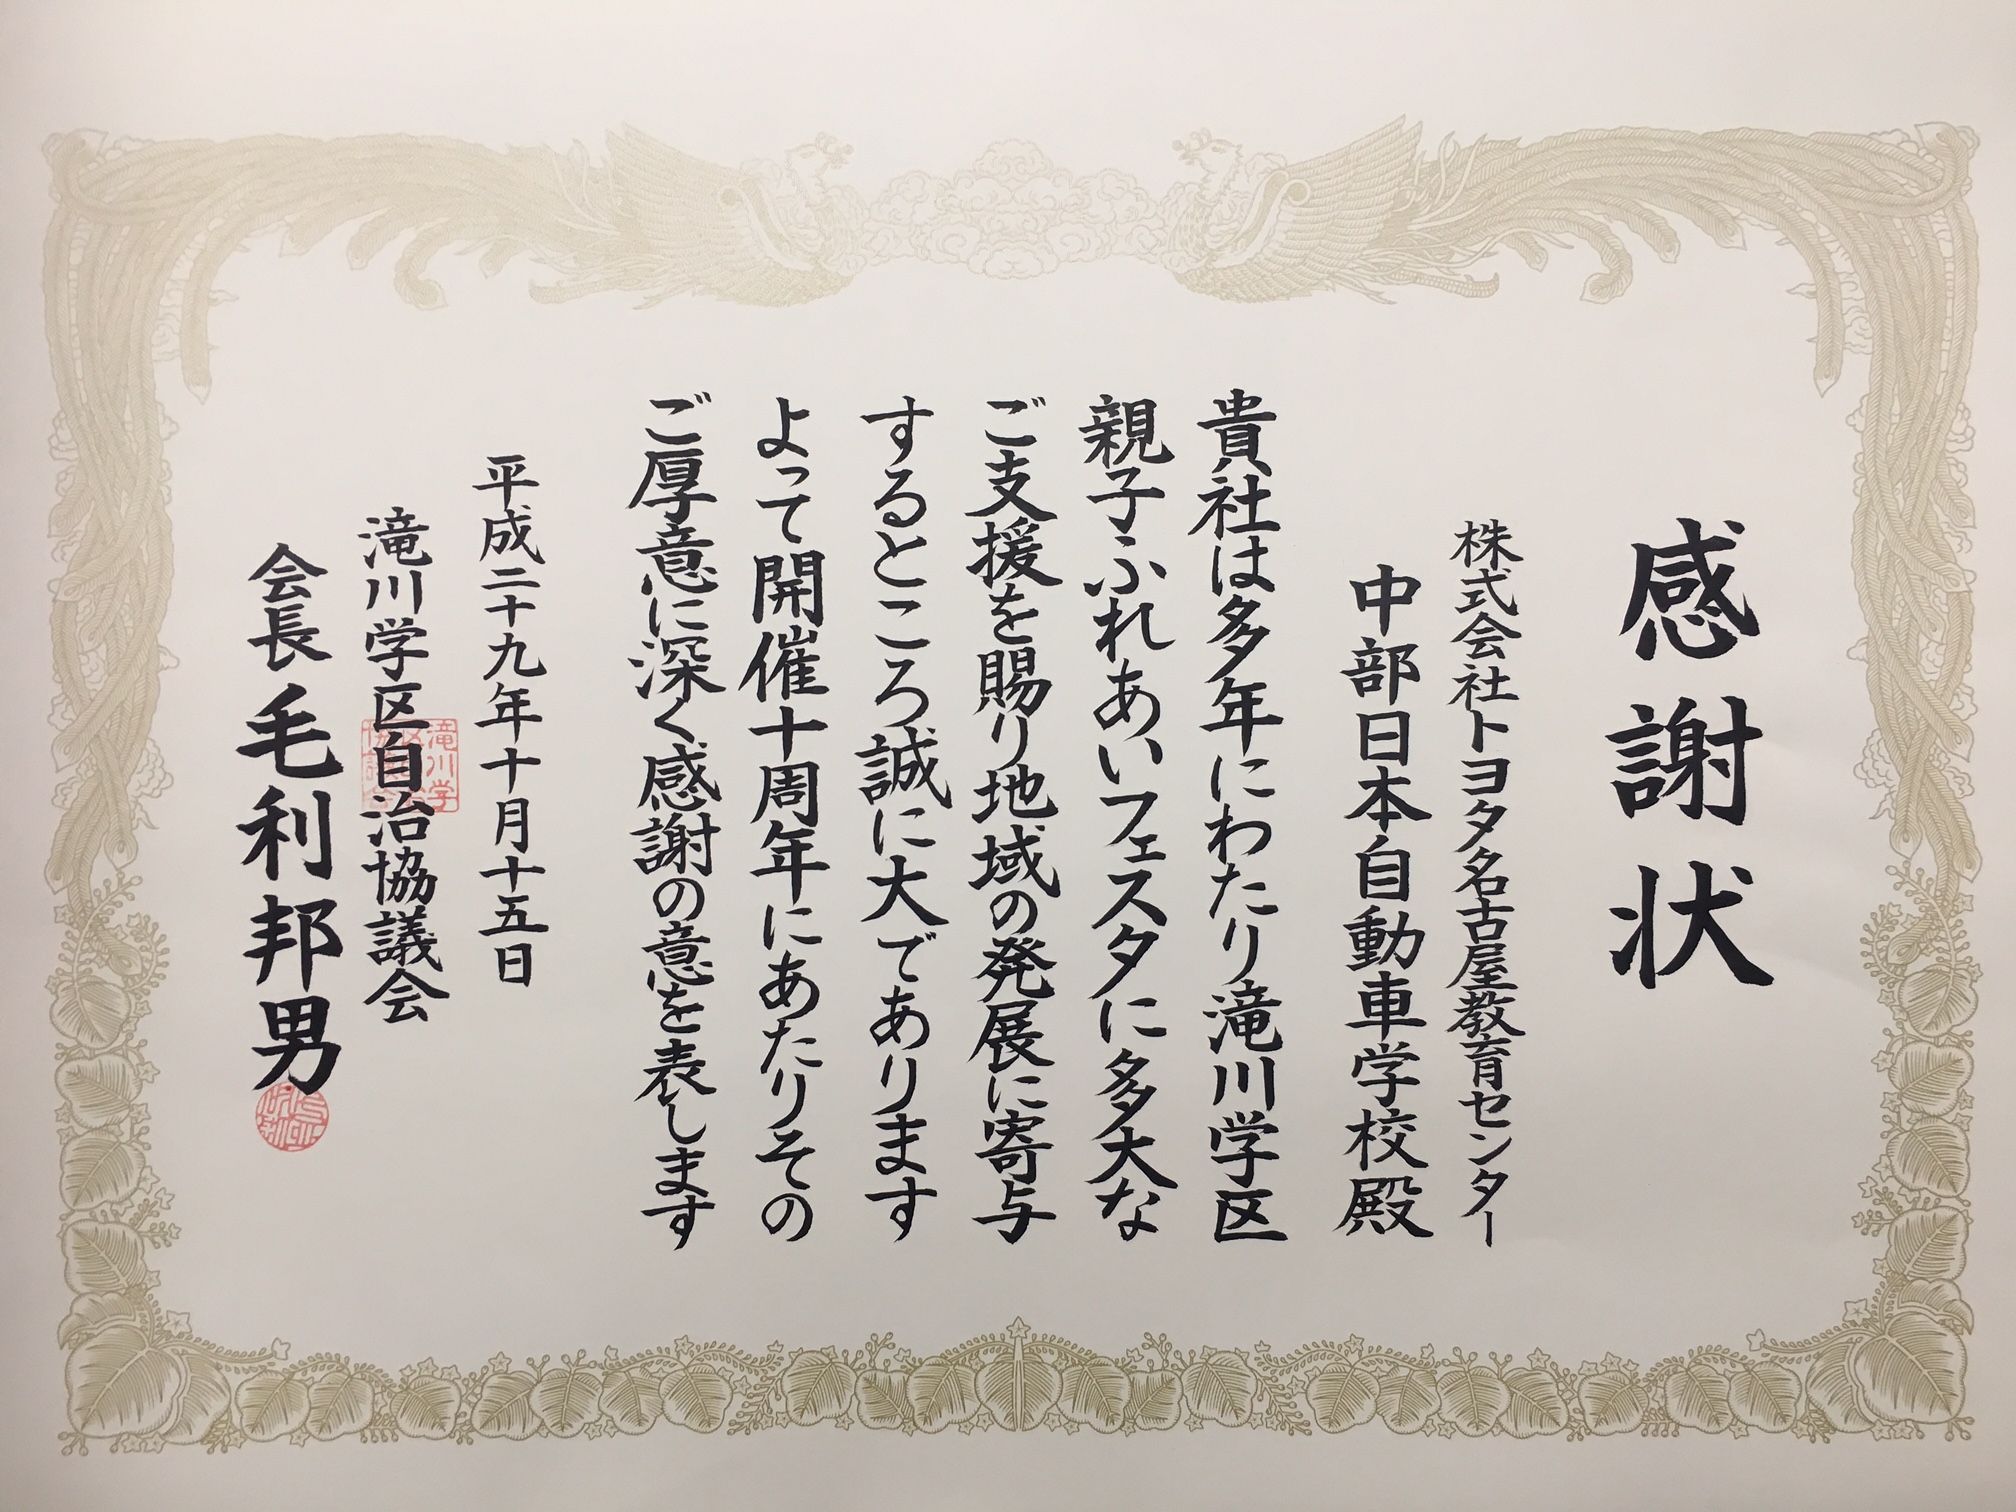 感謝状
株式会社トヨタ名古屋教育センター
中部日本自動車学校殿
貴社は多年にわたり滝川学区
親子ふれあいフェスタに多大な
ご支援を賜り地域の発展に寄与
するところ誠に大であります
よって開催十周年にあたりその
ご厚意に深く感謝の意を表します
平成二十九年十月十五日
滝川学区自治協議会
会長毛利邦男